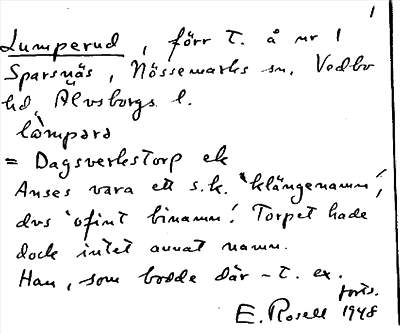 1
Lumperud, förr t. å nr 1
Sparsnäs, Nössemarks sn. Vedbo
hd. Älvsborgs l.
lòmpərə
= Dagsverkstorp ek
Anses vara ett s.k. 'klängenamn',
dvs 'ofint binamn'. Torpet hade
dock intet annat namn.
Han, som bodde där – t. ex.
forts.
E. Rosell 1948